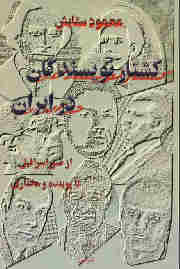 محمود ستایش
کشتار نویسندگان
در ایران
از صور اسرافیل
تا پوینده و مختاری